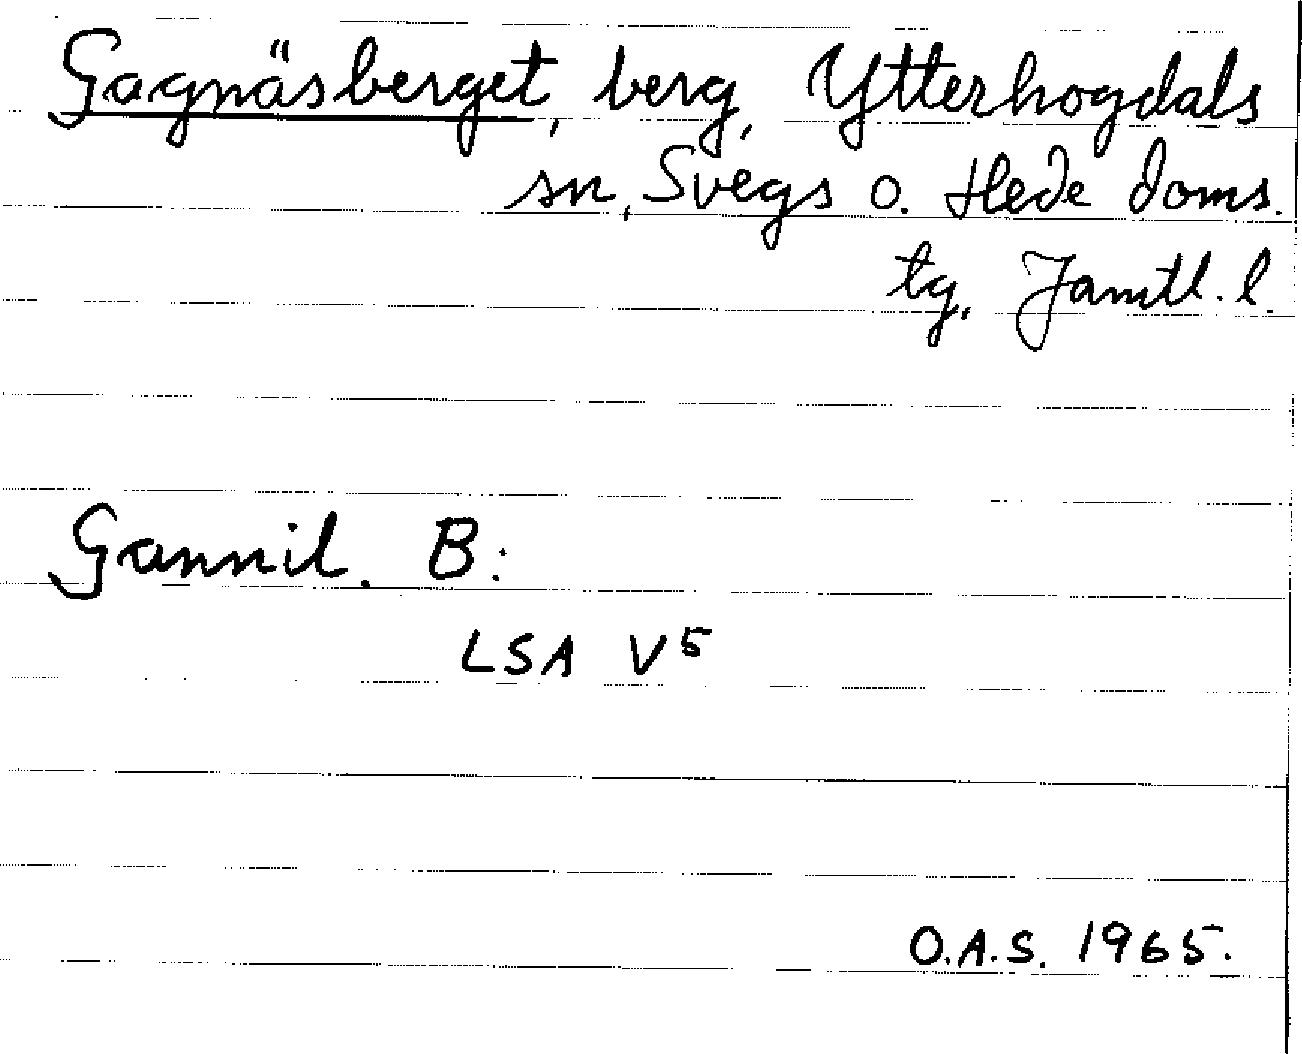 Gagnäsberget, berg, Ytterhogdals
sn, Svegs o. Hede doms.
tg, Jamtl. l.
Gannil. B:
LSA V5
O.A.S. 1965.